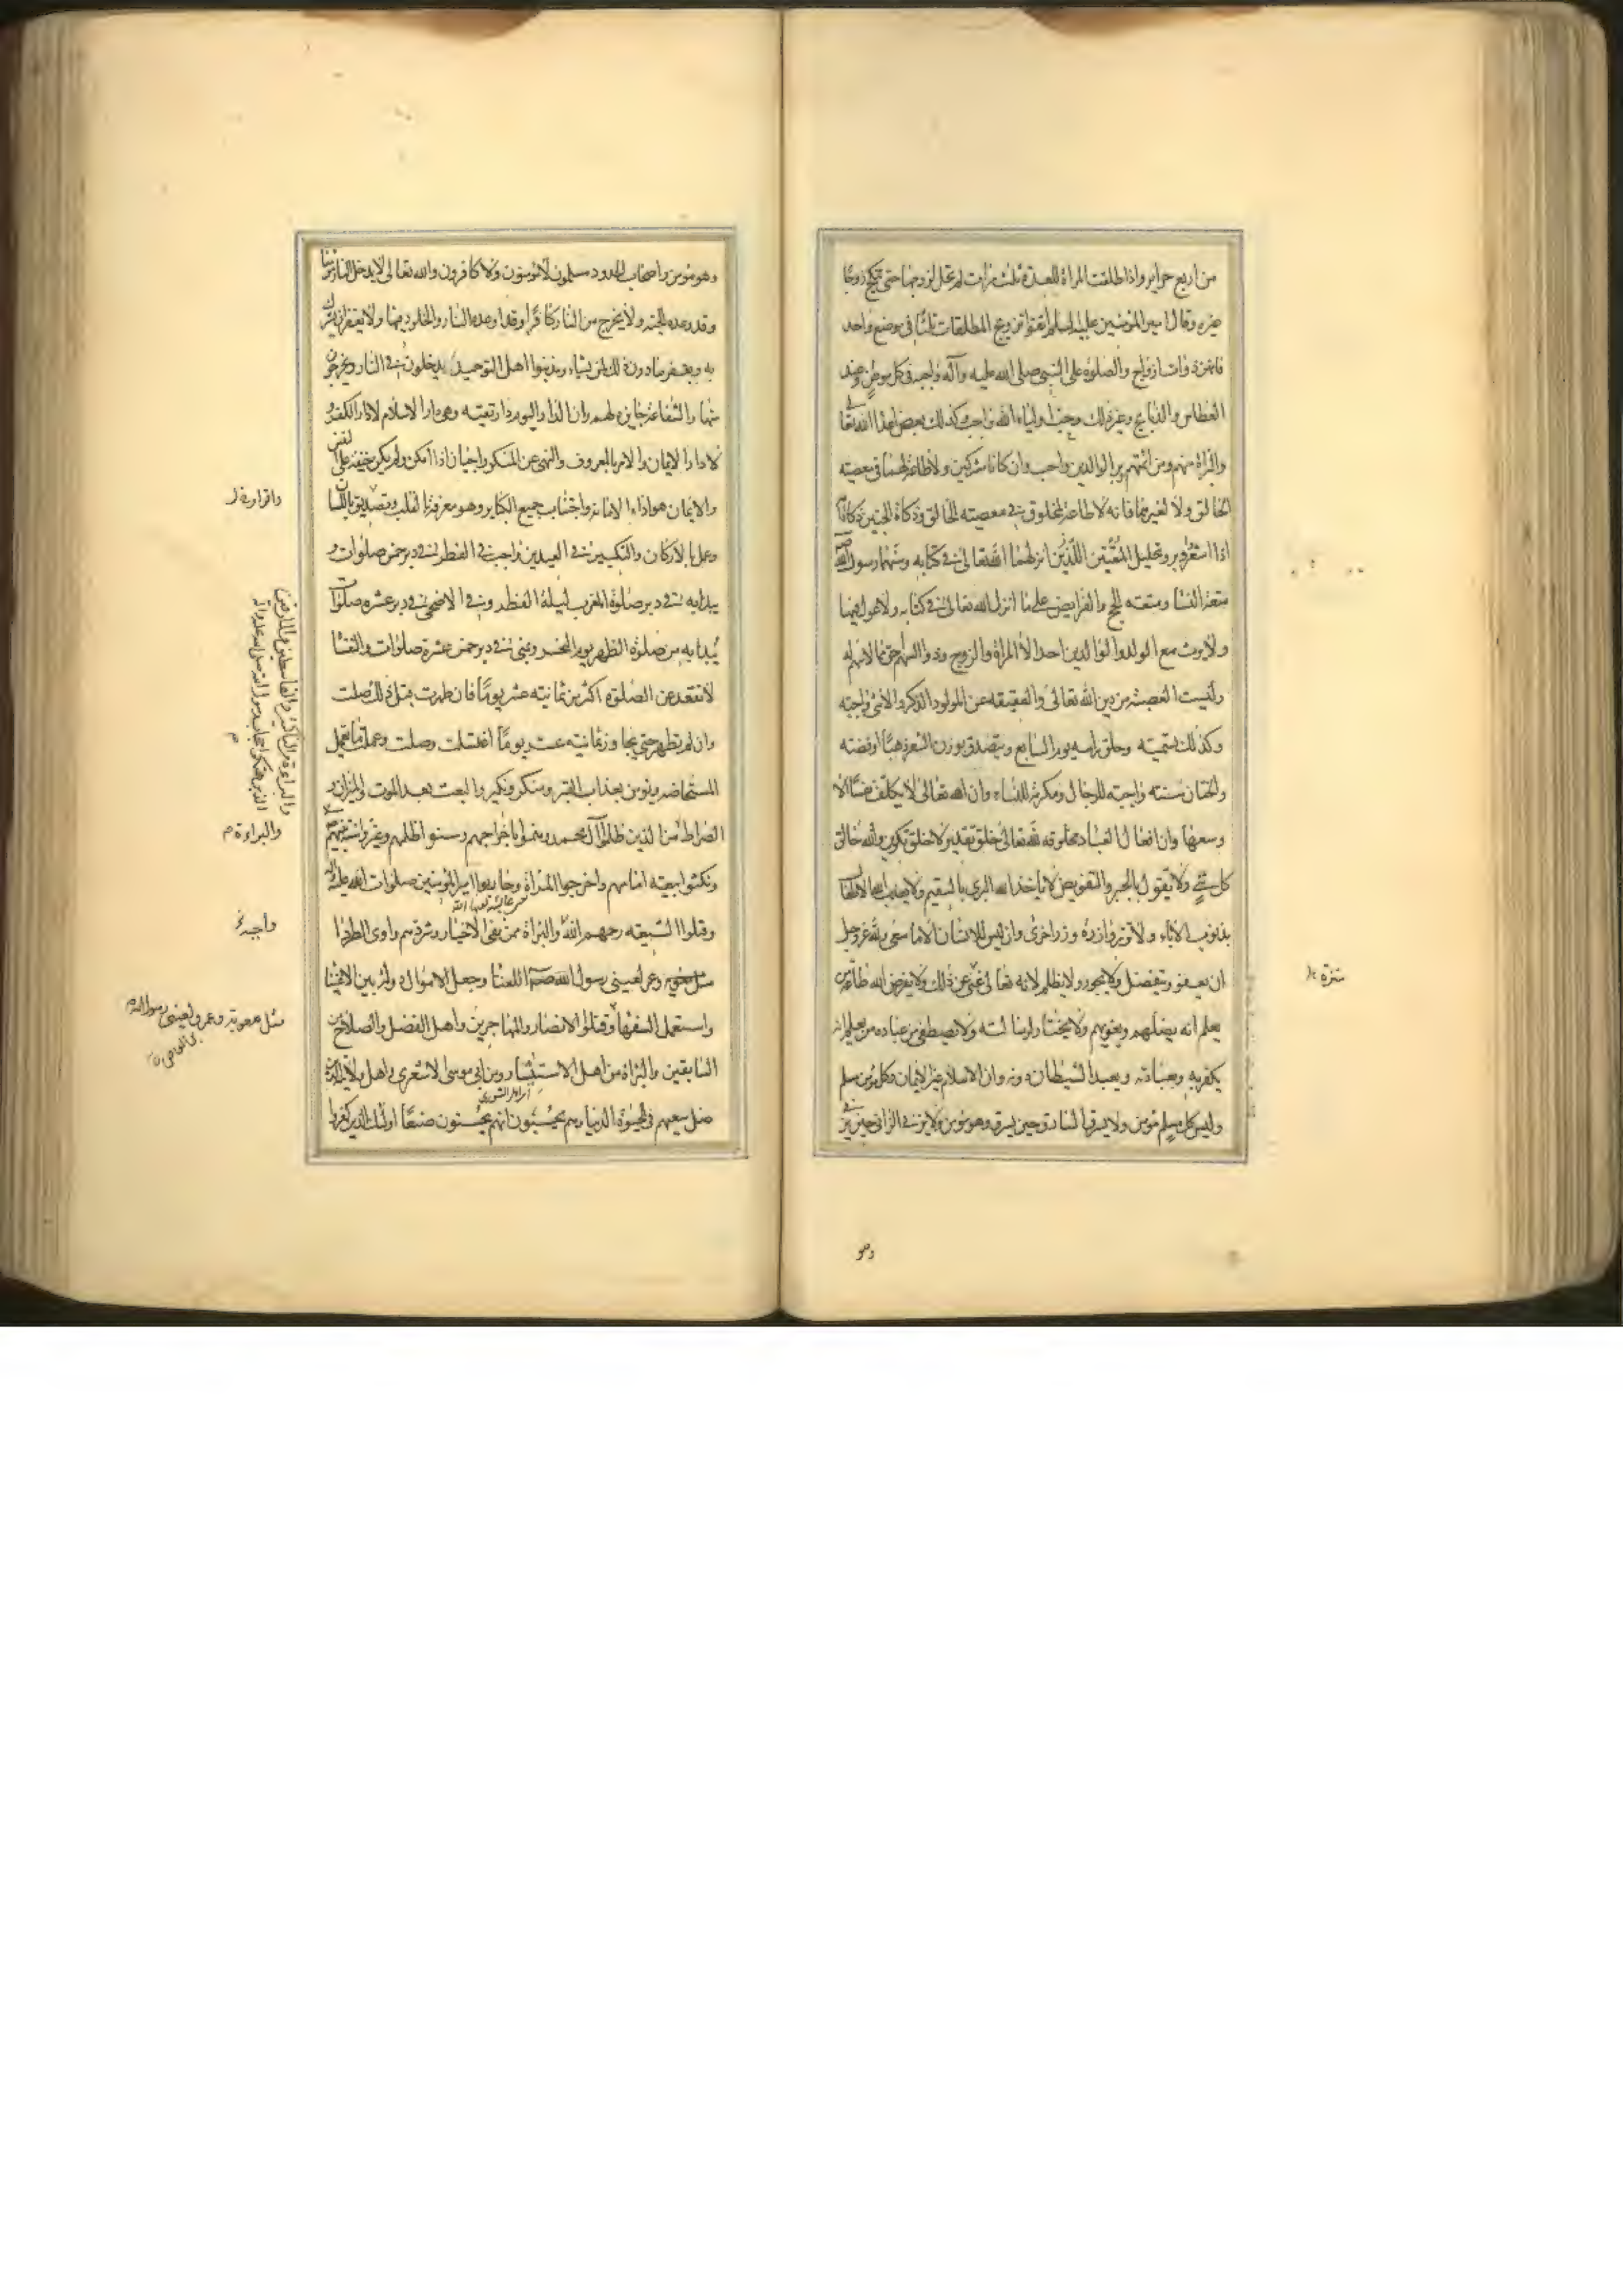 من اربع حراير واذا طلقت المراة للعدة ثلث مرات لم تحل لزوجها حتى تنكح زوجا
غيره وقال امير المؤمنين عليه السلم اتقوا تزويج المطلقات ثلثا في موضع واحد
فانهن ذوات ازواج والصلوة على النبي صلى الله عليه وآله واجبة في كل موطن وعند
العطاس والذبايح وغير ذلك وحب اولياء الله واجب وكذلك بغض اعداء الله تعا
والبراة منهم ومن ائمتهم وبر الوالدين واجب وان كانا مشركين ولا طاعة لهما في معصيته
الخالق ولا لغيرهما فانه لا طاعة لمخلوق في معصيته الخالق وذكاة الجنين ذكاة امه
اذا اشعر واوبر وتحليل المتعتين اللذين انزلهما الله تعالى في كتابه وسنهما رسول الله
متعة النسا ومتعته الحج والفرايض على ما انزل الله تعالى في كتابه ولا عول فيها
ولا يورث مع الولد والوالدين احد الا المراة والزوج وذو السهم احق ممن لا سهم له
وليست العصبة من دين الله تعالى والعقيقه عن المولود الذكر والانثى واجبته
وكذلك تسميته وحلق راسه يوم السابع ويتصدق بوزن الشعر ذهبا او فضته
والختان سنته واجبته للرجال ومكرمة للنساء وان الله تعالى لا يكلف نفسا الا
وسعها وان افعال العباد مخلوقه لله تعالى خلق تقدير لا خلق تكوين والله خالق
كل شئ ولا يقول بالجبر والتفويض لا ياخذ الله البرى بالسقيم ولا يعذب الله الاطفال
بذنوب الاباء ولا تزر وازرة وزر اخرى وان ليس للانسان الا ما سعى ولله عز وجل
ان يعفو ويتفضل ولا يجور ولا يظلم لانه تعالى غنى عن ذلك ولا يفرض الله طاعة من
يعلم انه يضلهم ويغويهم ولا يختار لرسالته ولا يصطفي من عباده من يعلم انه
يكفر به وبعبادته ويعبد الشيطان دونه وان الاسلام غير الايمان وكل مؤمن مسلم
وليس كل مسلم مؤمن ولا يسرق السارق حين يسرق وهو مؤمن ولا يزني الزاني حين يزني
وهو
وهو مؤمن واصحاب الحدود مسلمون لا مؤمنون ولا كافرون والله تعالى لا يدخل النار مؤمنا
وقد وعده الجنة ولا يخرج من النار كافرا وقد اوعده النار والخلود فيها ولا يغفر ان يشرك
به ويغفر ما دون ذلك لمن يشاء ومذنبوا اهل التوحيد يدخلون في النار ويخرجون
منها والشفاعة جايزه لهم وان الدار اليوم دار تقيته وهي دار الاسلام لا دار الكفر و
لا دار الايمان والامر بالمعروف والنهى عن المنكر واجبان اذا امكن ولم يكن خيفة على النفس
والايمان هو اداء الامانة واجتناب جميع الكباير وهو معرفة القلب وتصديق باللسان
وعمل بالاركان والتكبير في العيدين واجب في الفطر في دبر خمس صلوات و
يبدا به في دبر صلوة المغرب ليلة الفطر وفي الاضحى في دبر عشره صلوات
يبدا به من صلوة الظهر يوم النحر وبمنى في دبر خمس عشرة صلوات والنفسا
لا تقعد عن الصلوة اكثر من ثمانيته عشر يوما فان طهرت قبل ذلك صلت
وان لم تطهر حتى تجاوز ثمانيته عشر يوما اغتسلت وصلت وعملت ما تعمل
المستحاضه ويؤمن بعذاب القبر ومنكر ونكير والبعث بعد الموت والميزان و
الصراط من الذين ظلموا آل محمد وهموا باخراجهم وسنوا ظلمهم وغيروا سنة نبيهم
ونكثوا بيعته امامهم واخرجوا المراة وحاربوا امير المؤمنين صلوات الله عليه
وقتلوا الشيعته رحمهم الله والبراة ممن نفى الاخيار وشردهم واوى الطردا
اللعنا وجعل الاموال دولة بين الاغنيا
واستعمل السفها وقتلوا الانصار والمهاجرين واهل الفضل والصلاح من
السابقين والبراة من اهل الاستيثار ومن ابي موسى الاشعرى واهل ولايته الذين
ضل سعيهم في الحيوة الدنيا وهم يحسبون انهم يحسنون صنعا اولئك الذين كفروا
والبراءة م